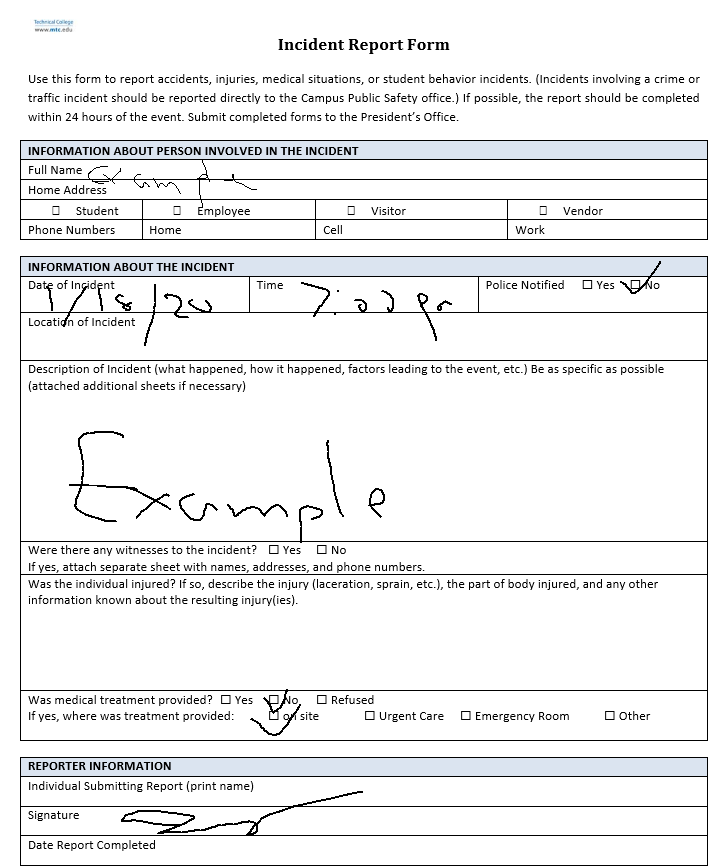 Technical College
www.mtc.edu
Incident Report Form
Use this form to report accidents, injuries, medical situations, or student behavior incidents. (Incidents involving a crime or
traffic incident should be reported directly to the Campus Public Safety office.) If possible, the report should be completed
within 24 hours of the event. Submit completed forms to the President's Office.
INFORMATION ABOUT PERSON INVOLVED IN THE INCIDENT
Full Name Example
Home Address
☐ Student ☐ Employee ☐ Visitor ☐ Vendor
Phone Numbers Home Cell Work
INFORMATION ABOUT THE INCIDENT
Date of Incident 1/18/20 Time 7:00 Police Notified ☐ Yes ☑ No
Location of Incident
Description of Incident (what happened, how it happened, factors leading to the event, etc.) Be as specific as possible
(attached additional sheets if necessary)
Example
Were there any witnesses to the incident? ☐ Yes ☐ No
If yes, attach separate sheet with names, addresses, and phone numbers.
Was the individual injured? If so, describe the injury (laceration, sprain, etc.), the part of body injured, and any other
information known about the resulting injury(ies).
Was medical treatment provided? ☐ Yes ☑ No ☐ Refused
If yes, where was treatment provided: ☑ on site ☐ Urgent Care ☐ Emergency Room ☐ Other
REPORTER INFORMATION
Individual Submitting Report (print name)
Signature
Date Report Completed